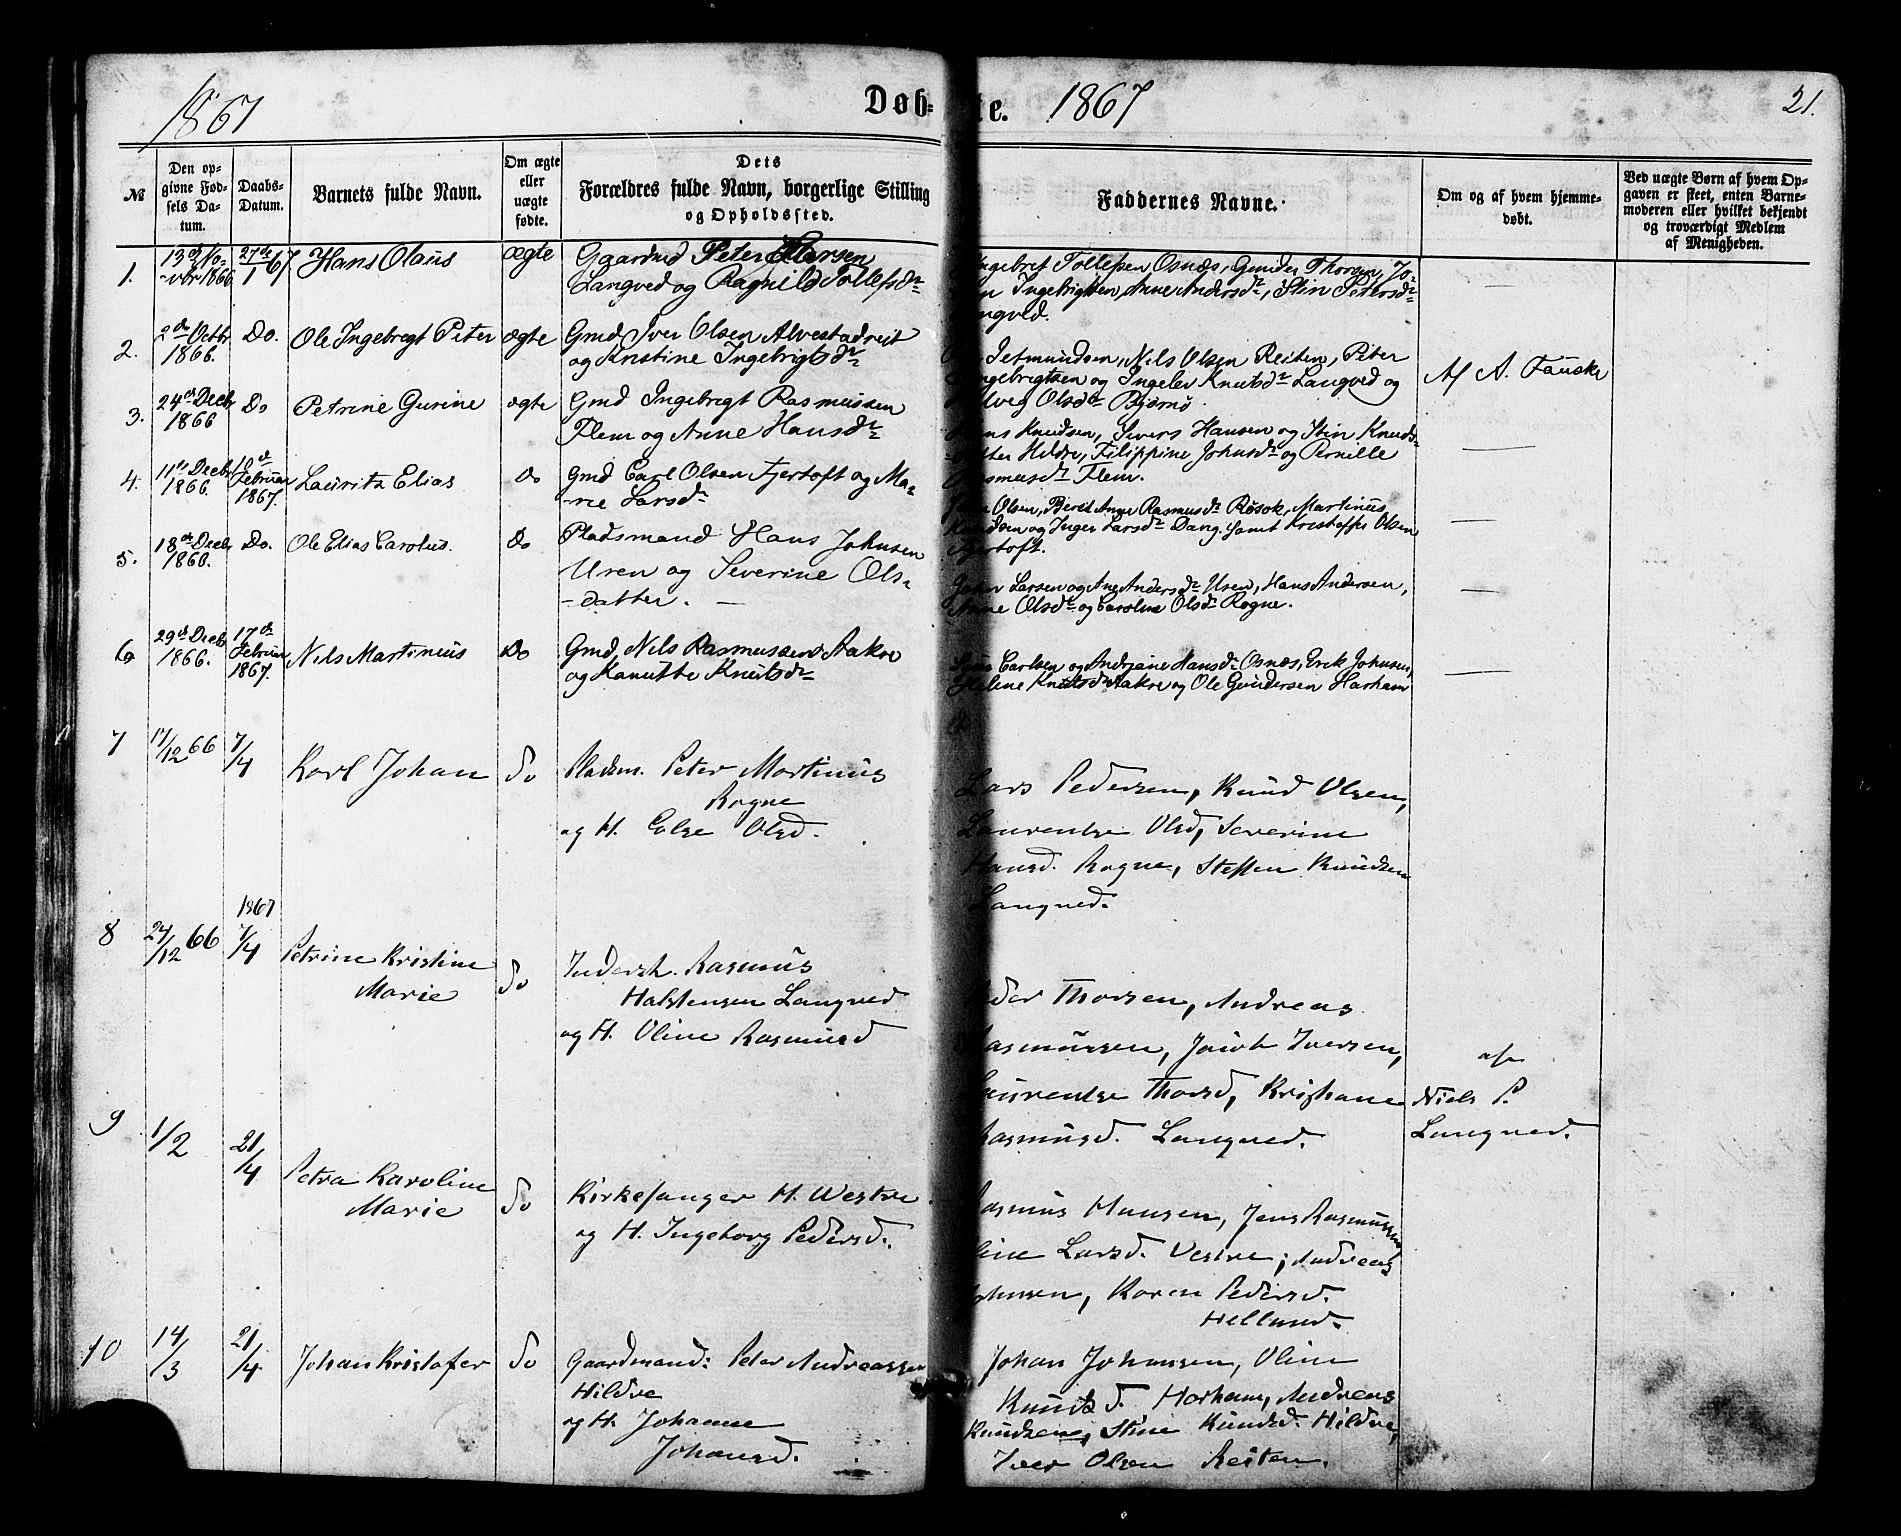 1867
Døb-
te. 1867
21.
№
Den op-
givne Fød-
sels Da-
tum.
Daabs-
Datum.
Barnets fulde Navn.
Om ægte
eller
uægte
fødte.
Dets
Forældres fulde Navn, borgerlige Stilling
og Opholdssted.
Faddernes Navne.
Om og af hvem hjemme-
døbt.
Ved uægte Børn af hvem Op-
gaven er skeet, enten Barne-
moderen eller hvilket bekjendt
og troværdigt Medlem
af Menigheden.
1.
13de No-
-vbr 1866
27de
1 67
Hans Olaus
ægte
Gaardmd Peter Larsen
Langved og Ragnild Tollefsdr
Ingebret Tollefsen Osnæs, Gunder Thorsen, Jo-
Ingebrigtsen, Anne Andersdr, Stin Petersdr
—
2.
2de Octbr
1866.
Do.
Ole Ingebregt Peter
ægte
Gmd Iver Olsen Alvestadreit
og Kristine Ingebrigtsdr
Jetmundsen, Nils Olsen Reiten, Peter
Ingebrigtsen og Ingelev Knutsdr Langved og
Olsdr Bjørnø
Af A. Fauske
3.
24de Decbr
1866
Do
Petrine Gurine
ægte
Gmd Ingebregt Rasmussen
Flem og Anne Hansdr
Knudsen, Sivert Hansen og Stin Knuds-
Hildre, Filippine Johnsdr og Pernille
Rasmusdr Flem.
—
4.
11te Decbr
1866.
10de
Februar
1867.
Lauritz Elias
Do
Gmd Carl Olsen Fjertoft og Ma-
-rie Larsdr
Olsen, Berit Anne Rasmusdr Røsok, Martinus
Knudsen og Inger Larsdr Dang. samt Kristoffer Olsen
Fjertoft.
—
5.
18de Decbr
1866.
Do.
Ole Elias Carolus.
Do
Pladsmand Hans Johnsen
Uren og Severine Ols-
-datter. —
Larsen og Ane Andersdr Uren, Hans Andersen,
Anne Olsdr og Caroline Olsdr Rogne.
—
6
29de Decbr
1866.
17de
Februar
1867.
Nils Martinius
Do
Gmd, Nils Rasmussen Aakre
og Hanutte Knutsdr
Carlsen og Andrjane Hansdr Osnæs, Erik Johnsen,
Helene Knutsdr Aakre og Ole Gundersen Harham
—
7
17/12 66
7/4
Karl Johan
do
Pladsm. Peter Martinus
Rogne
og H. Else Olsd.
Lars Pedersen, Knud Olsen,
Laurentse Olsd, Severine
Hansd. Rogne, Steffen Knudsen
Langved.
8
24/12 66
1867
7/4
Petrine Kristine
Marie
do
Inderst. Rasmus
Halstensen Langved
og H. Oline Rasmusd
Peder Thorsen, Andreas
Rasmussen, Jakob Iversen,
Laurentse Thorsd, Kristiane
Rasmusd. Langved.
af
Niels P.
Langved.
9
1/2
21/4
Petra Karoline
Marie
do
Kirkesanger H. Westre
og H. Ingeborg Pedersd.
Rasmus Hansen, Jens Rasmussen
Oline Larsd. Vestre, Andreas
Johnsen, Karen Pedersd.
Hellund.
10
14/3
21/4
Johan Kristofer
do
Gaardmand: Peter Andreassen
Hildre
og H. Johanne
Johansd.
Johan Johansen, Oline
Knutsd. Harham, Andreas
Knudsen, Stine Knudsd. Hildre,
Iver Olsen Reiten.